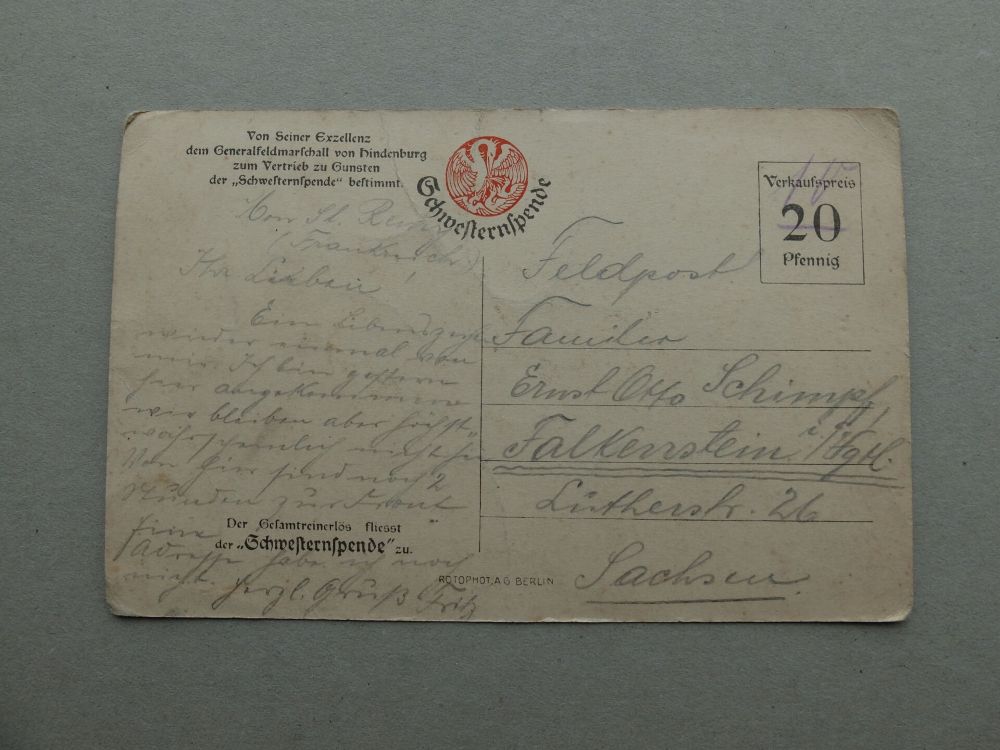 Von Seiner Exzellenz
dem Generalfeldmarschall von Hindenburg
zum Vertrieb zu Gunsten
der „Schwesternspende“ bestimmt.
Schwesternspende
Verkaufspreis
20
Pfennig
Von St.
(Frankreich)
Ihr Lieben,
Ein Lebenszeichen
wieder einmal von
mir. Ich bin gestern
hier angekommen
wir bleiben aber höchst
wahrscheinlich nicht
Von hier sind noch 2
Stunden zur Front
Eine
Adresse habe ich noch
nicht. Herzl. Gruß Fritz
Der Gesamtreinerlös fliesst
der „Schwesternspende“ zu.
ROTOPHOT A.G. BERLIN
Feldpost
Familie
Ernst Otto Schimpf,
Falkenstein i/Vgtl.
Lutherstr. 26
Sachsen.